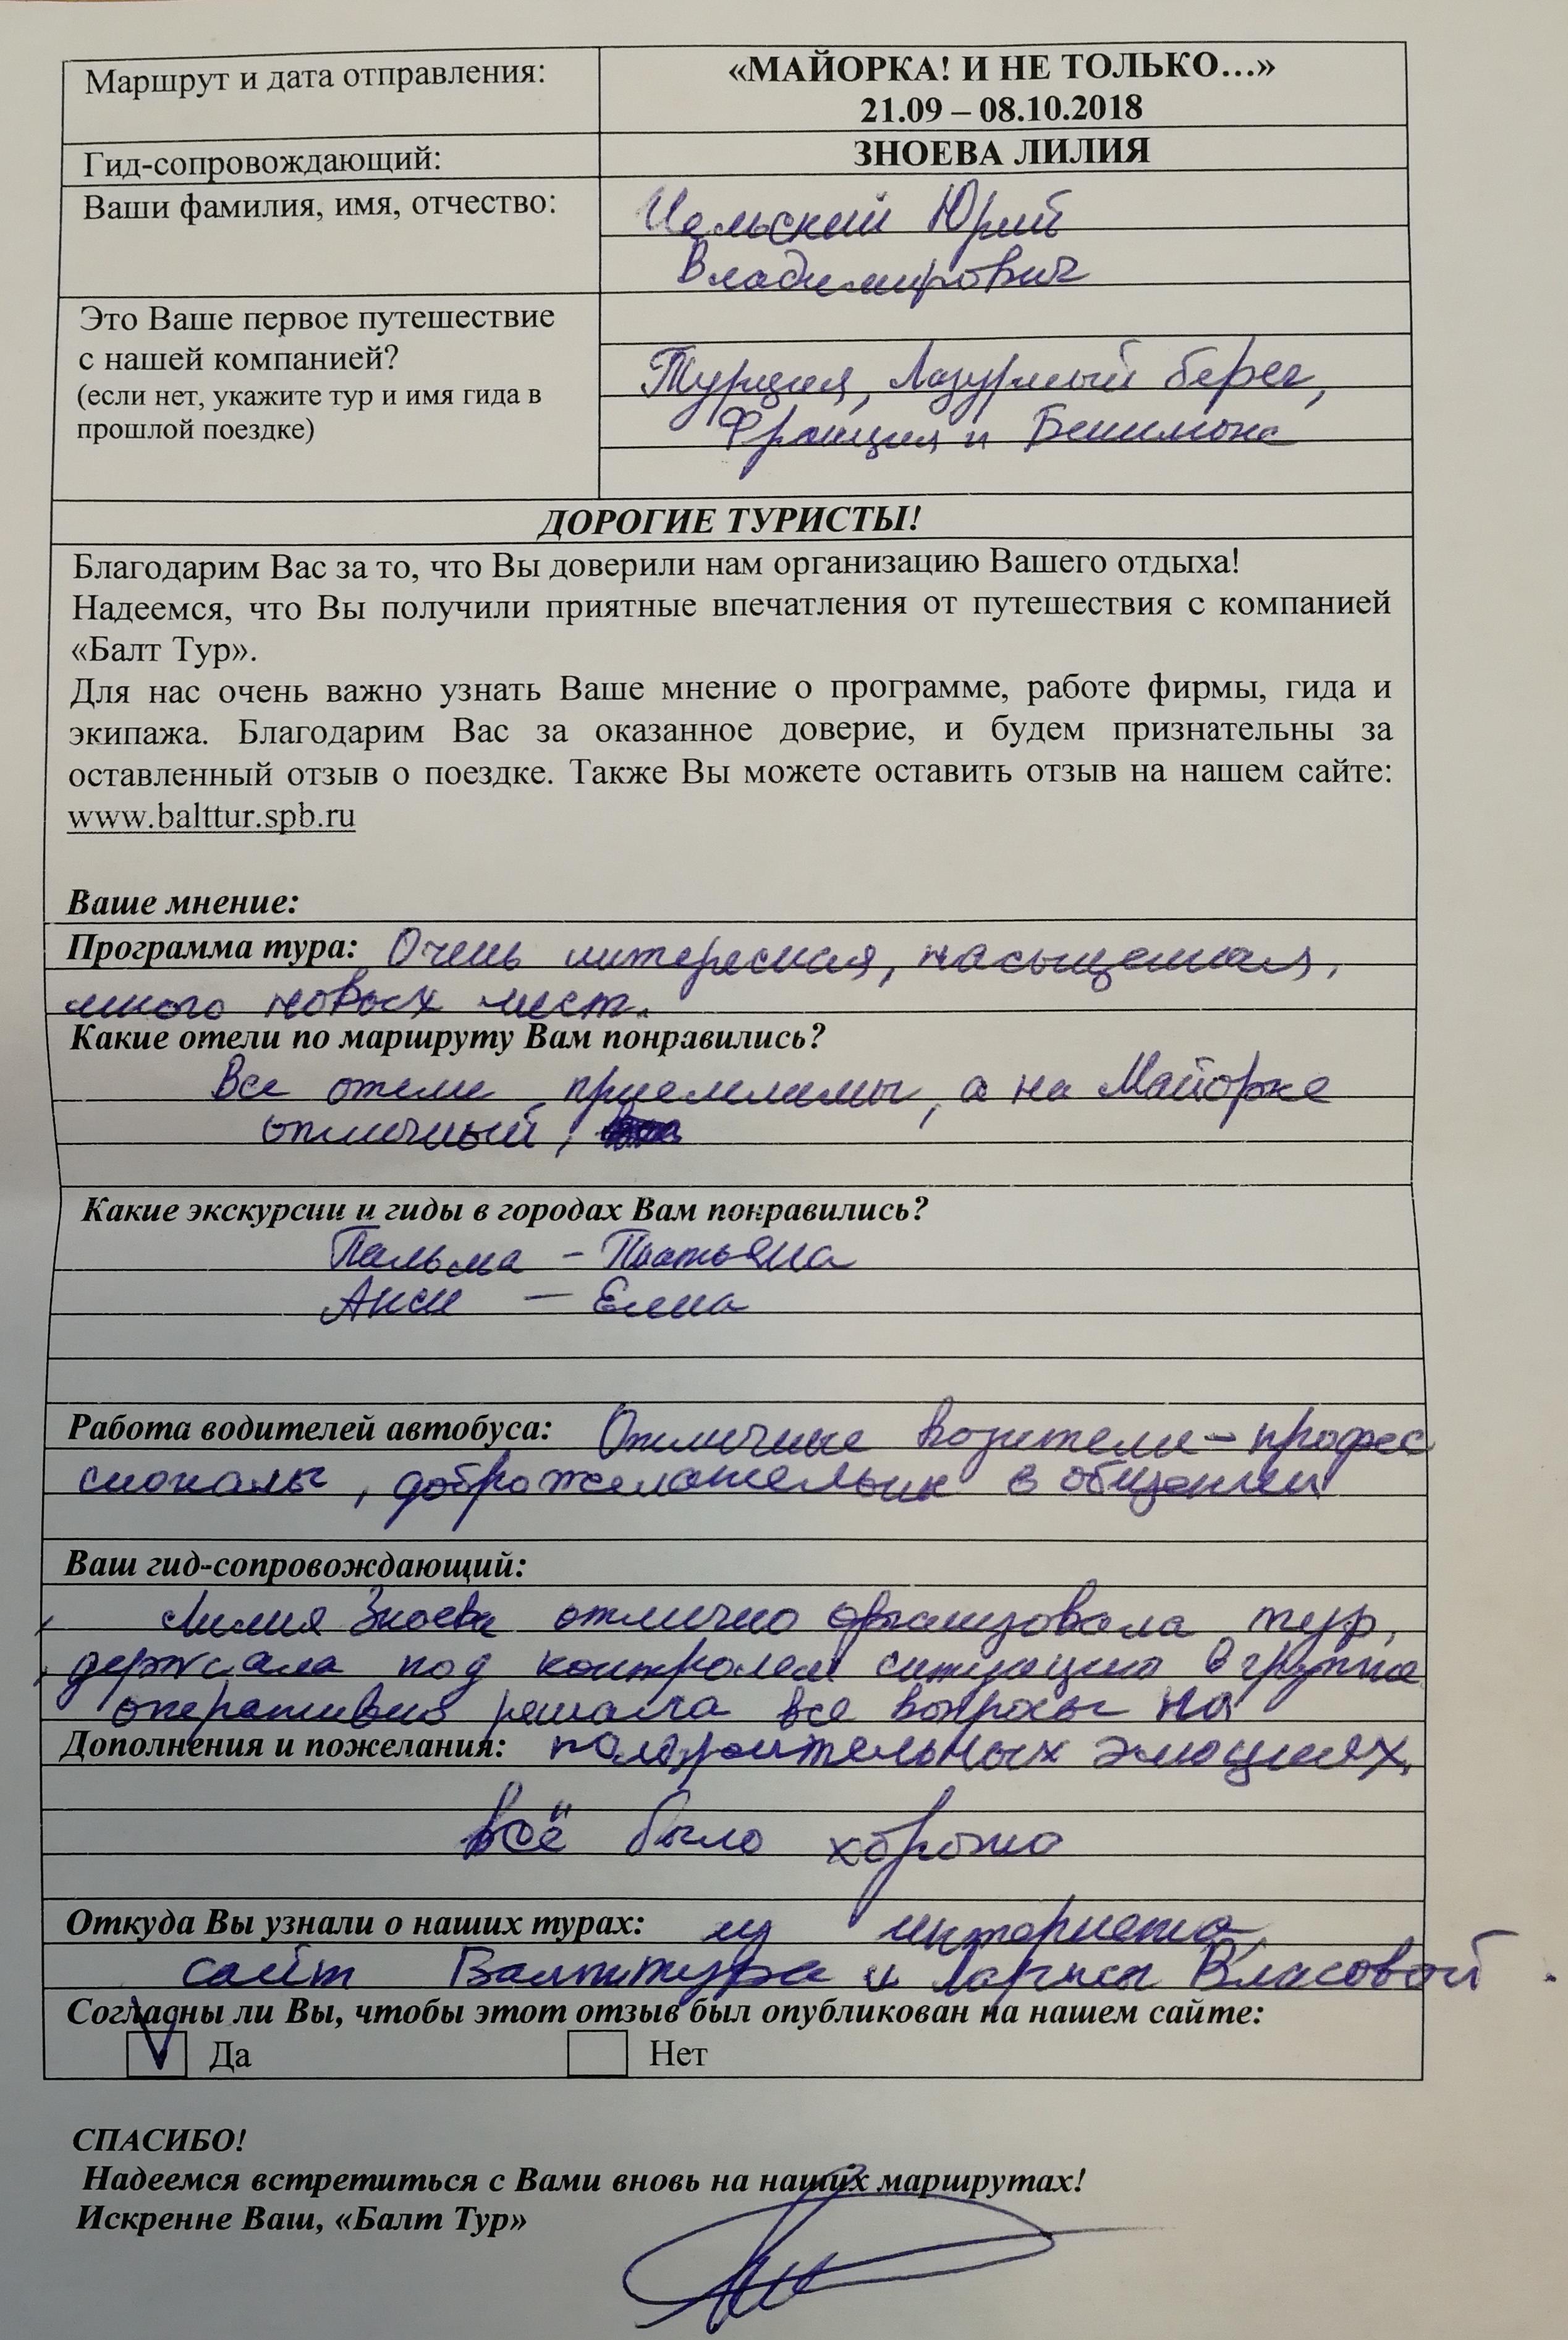 Маршрут и дата отправления:
«МАЙОРКА! И НЕ ТОЛЬКО…»
21.09 – 08.10.2018
Гид-сопровождающий:
ЗНОЕВА ЛИЛИЯ
Ваши фамилия, имя, отчество:
Юрий
Владимирович
Это Ваше первое путешествие
с нашей компанией?
(если нет, укажите тур и имя гида в
прошлой поездке)
Турция, Лазурный берег,
Франция и
ДОРОГИЕ ТУРИСТЫ!
Благодарим Вас за то, что Вы доверили нам организацию Вашего отдыха!
Надеемся, что Вы получили приятные впечатления от путешествия с компанией
«Балт Тур».
Для нас очень важно узнать Ваше мнение о программе, работе фирмы, гида и
экипажа. Благодарим Вас за оказанное доверие, и будем признательны за
оставленный отзыв о поездке. Также Вы можете оставить отзыв на нашем сайте:
www.balttur.spb.ru
Ваше мнение:
Программа тура: Очень интересная, насыщенная,
много новых мест.
Какие отели по маршруту Вам понравились?
Все отели приемлимы, а на Майорке
отличный,
Какие экскурсии и гиды в городах Вам понравились?
Пальма – Татьяна
Анси – Елена
Работа водителей автобуса: Отличные водители – профес
сионалы, доброжелательны в общении
Ваш гид-сопровождающий:
Лилия Зноева отлично организовала тур,
держала под контролем ситуацию в группе
оперативно решала все вопросы на
Дополнения и пожелания: положительных эмоциях.
всё было хорошо
Откуда Вы узнали о наших турах: из интернета
сайт Балттура и Ларисы Власовой.
Согласны ли Вы, чтобы этот отзыв был опубликован на нашем сайте:
V Да Нет
СПАСИБО!
Надеемся встретиться с Вами вновь на наших маршрутах!
Искренне Ваш, «Балт Тур»